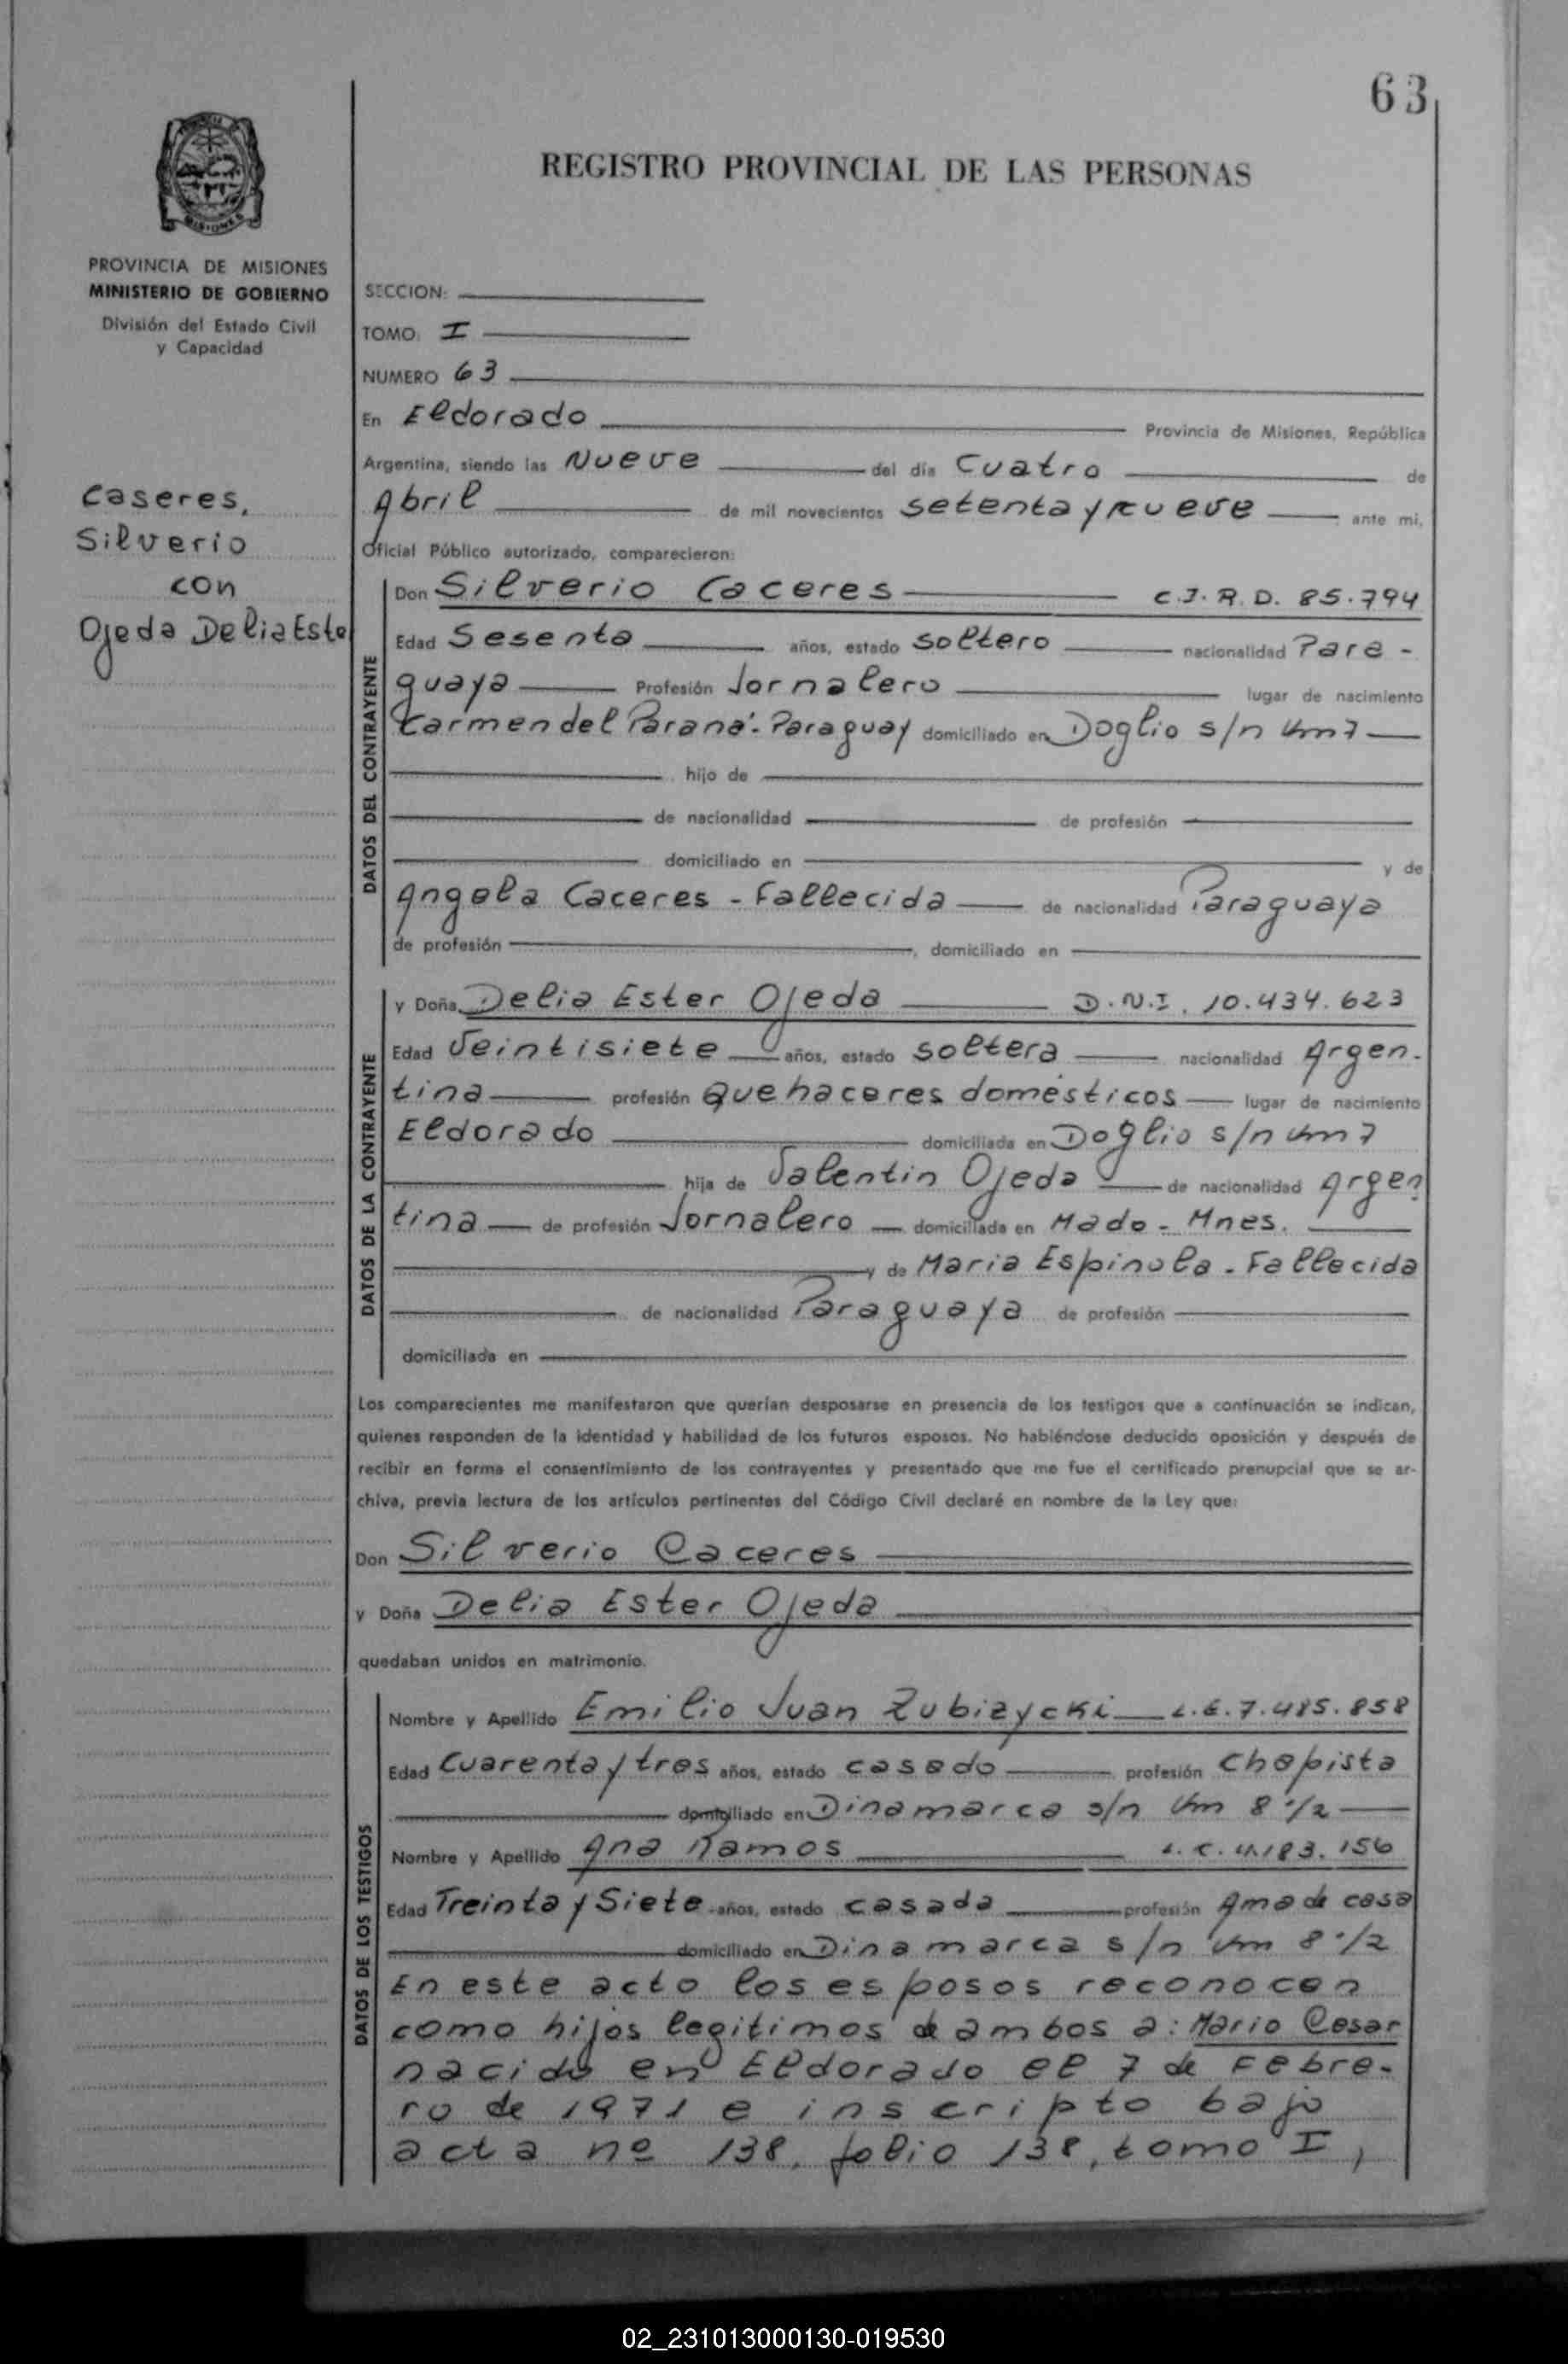 63
REGISTRO PROVINCIAL DE LAS PERSONAS
MISIONES
PROVINCIA DE MISIONES
MINISTERIO DE GOBIERNO
División del Estado Civil
y Capacidad
SECCION:
TOMO: I
NUMERO 63
En Eldorado Provincia de Misiones, República
Argentina, siendo las Nueve del día Cuatro de
Abril de mil novecientos setenta y nueve ante mi,
Oficial Público autorizado, comparecieron:
Caseres,
Silverio
con
Ojeda Delia Este
DATOS DEL CONTRAYENTE
Don Silverio Caceres C.I.R.D. 85.794
Edad Sesenta años, estado soltero nacionalidad Para-
guaya Profesión Jornalero lugar de nacimiento
Carmen del Paraná-Paraguay domiciliado en Doglio s/n Km 7
hijo de
de nacionalidad de profesión
domiciliado en y de
Angela Caceres - Fallecida de nacionalidad Paraguaya
de profesión , domiciliado en
DATOS DE LA CONTRAYENTE
y Doña Delia Ester Ojeda D.N.I. 10.434.623
Edad Veintisiete años, estado soltera nacionalidad Argen-
tina profesión Quehaceres domésticos lugar de nacimiento
Eldorado domiciliada en Doglio s/n Km 7
hija de Valentin Ojeda de nacionalidad Argen
tina de profesión Jornalero domiciliada en Mado - Mnes.
y de Maria Espinola - Fallecida
de nacionalidad Paraguaya de profesión
domiciliada en
Los comparecientes me manifestaron que querían desposarse en presencia de los testigos que a continuación se indican,
quienes responden de la identidad y habilidad de los futuros esposos. No habiéndose deducido oposición y después de
recibir en forma el consentimiento de los contrayentes y presentado que me fue el certificado prenupcial que se ar-
chiva, previa lectura de los artículos pertinentes del Código Civil declaré en nombre de la Ley que:
Don Silverio Caceres
y Doña Delia Ester Ojeda
quedaban unidos en matrimonio.
DATOS DE LOS TESTIGOS
Nombre y Apellido Emilio Juan Zubizycki L.E. 7.485.858
Edad Cuarenta y tres años, estado casado profesión Chapista
domiciliado en Dinamarca s/n Km 8 1/2
Nombre y Apellido Ana Ramos L.C. 4.183.156
Edad Treinta y Siete años, estado casada profesión Ama de casa
domiciliado en Dinamarca s/n Km 8 1/2
En este acto los esposos reconocen
como hijos legitimos de ambos a: Mario Cesar
nacido en Eldorado el 7 de Febre-
ro de 1971 e inscripto bajo
acta nº 138, folio 138, tomo I,
02_231013000130-019530